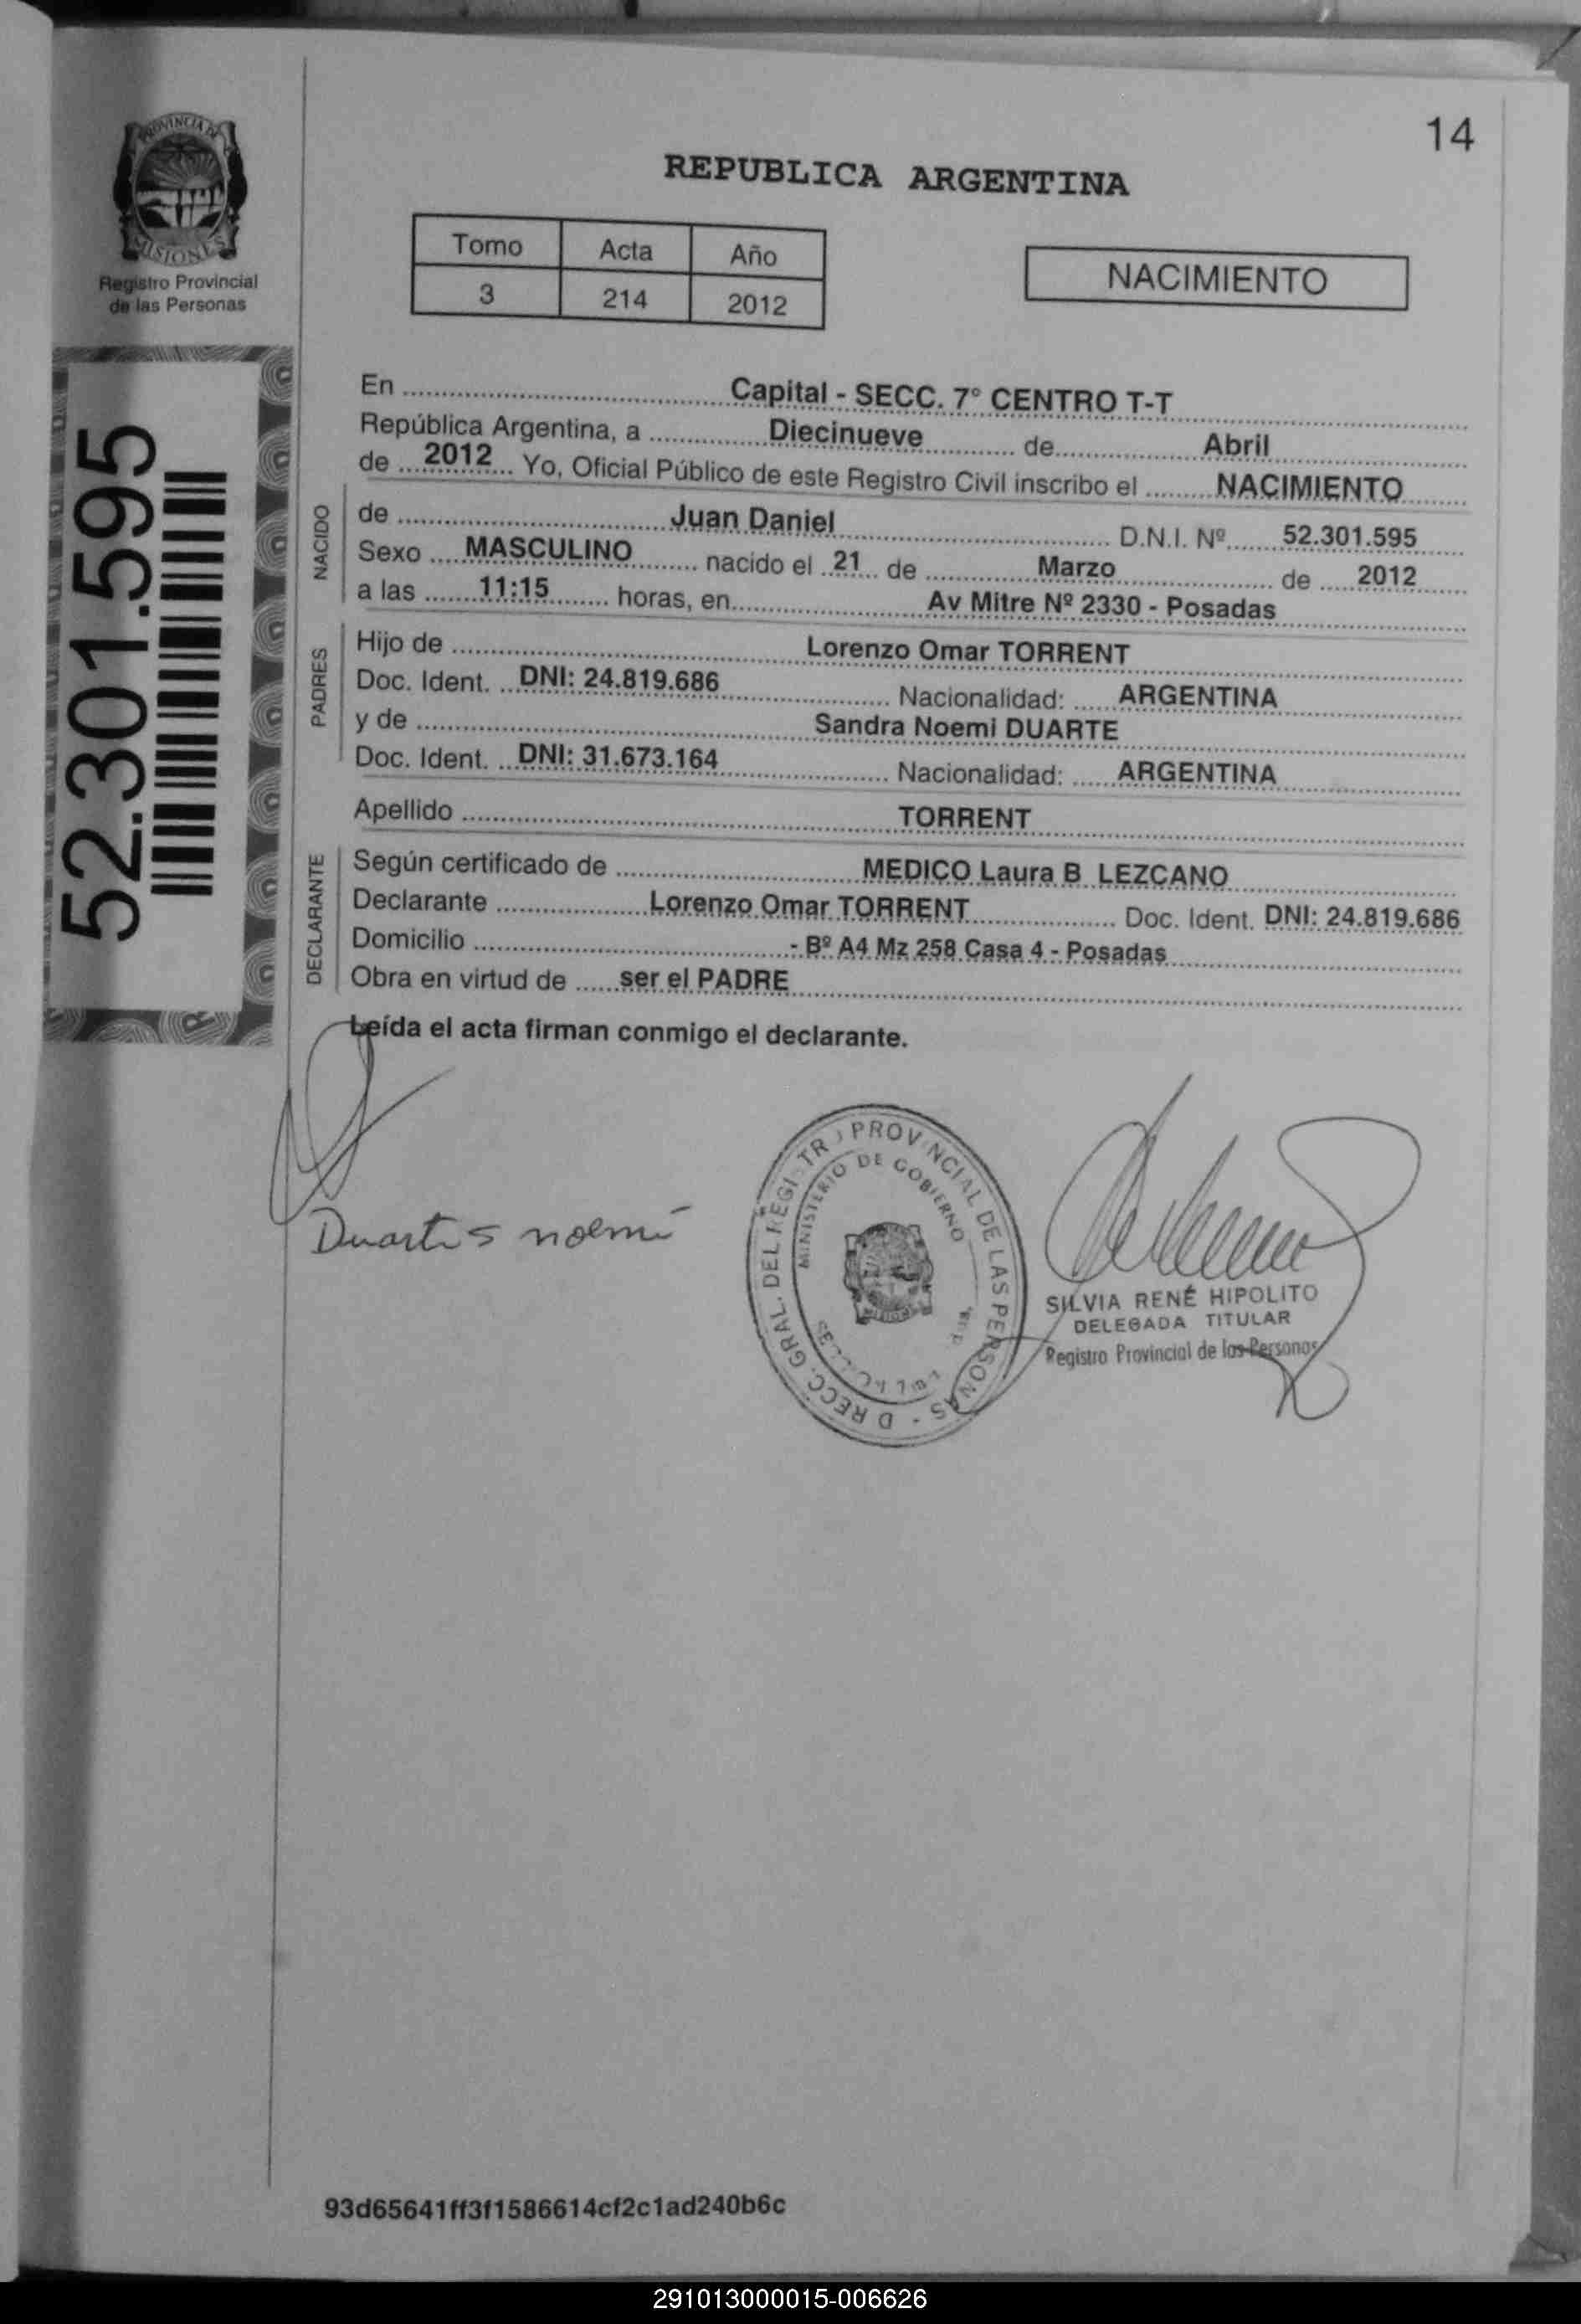 14
REPUBLICA ARGENTINA
PROVINCIA DE
MISIONES
Registro Provincial
de las Personas
Tomo Acta Año
3 214 2012
NACIMIENTO
52.301.595
En Capital - SECC. 7° CENTRO T-T
República Argentina, a Diecinueve de Abril
de 2012 Yo, Oficial Público de este Registro Civil inscribo el NACIMIENTO
NACIDO
de Juan Daniel D.N.I. Nº 52.301.595
Sexo MASCULINO nacido el 21 de Marzo de 2012
a las 11:15 horas, en Av Mitre Nº 2330 - Posadas
PADRES
Hijo de Lorenzo Omar TORRENT
Doc. Ident. DNI: 24.819.686 Nacionalidad: ARGENTINA
y de Sandra Noemi DUARTE
Doc. Ident. DNI: 31.673.164 Nacionalidad: ARGENTINA
Apellido TORRENT
DECLARANTE
Según certificado de MEDICO Laura B LEZCANO
Declarante Lorenzo Omar TORRENT Doc. Ident. DNI: 24.819.686
Domicilio - Bº A4 Mz 258 Casa 4 - Posadas
Obra en virtud de ser el PADRE
Leída el acta firman conmigo el declarante.
Duarte S noemí
PROVINCIAL DE LAS PERSONAS
MINISTERIO DE GOBIERNO
SILVIA RENÉ HIPOLITO
DELEGADA TITULAR
Registro Provincial de las Personas
93d65641ff3f1586614cf2c1ad240b6c
291013000015-006626